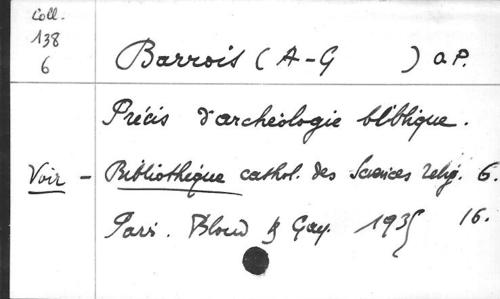 Coll.
138
6
Barrois (A-G ) O.P.
Précis d'archéologie biblique.
Voir - Bibliothèque cathol. des Sciences relig. 6.
Paris. Bloud & Gay. 1935 16.